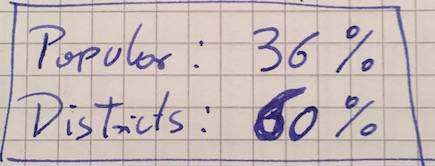 Popular: 36%
Districts: 60%